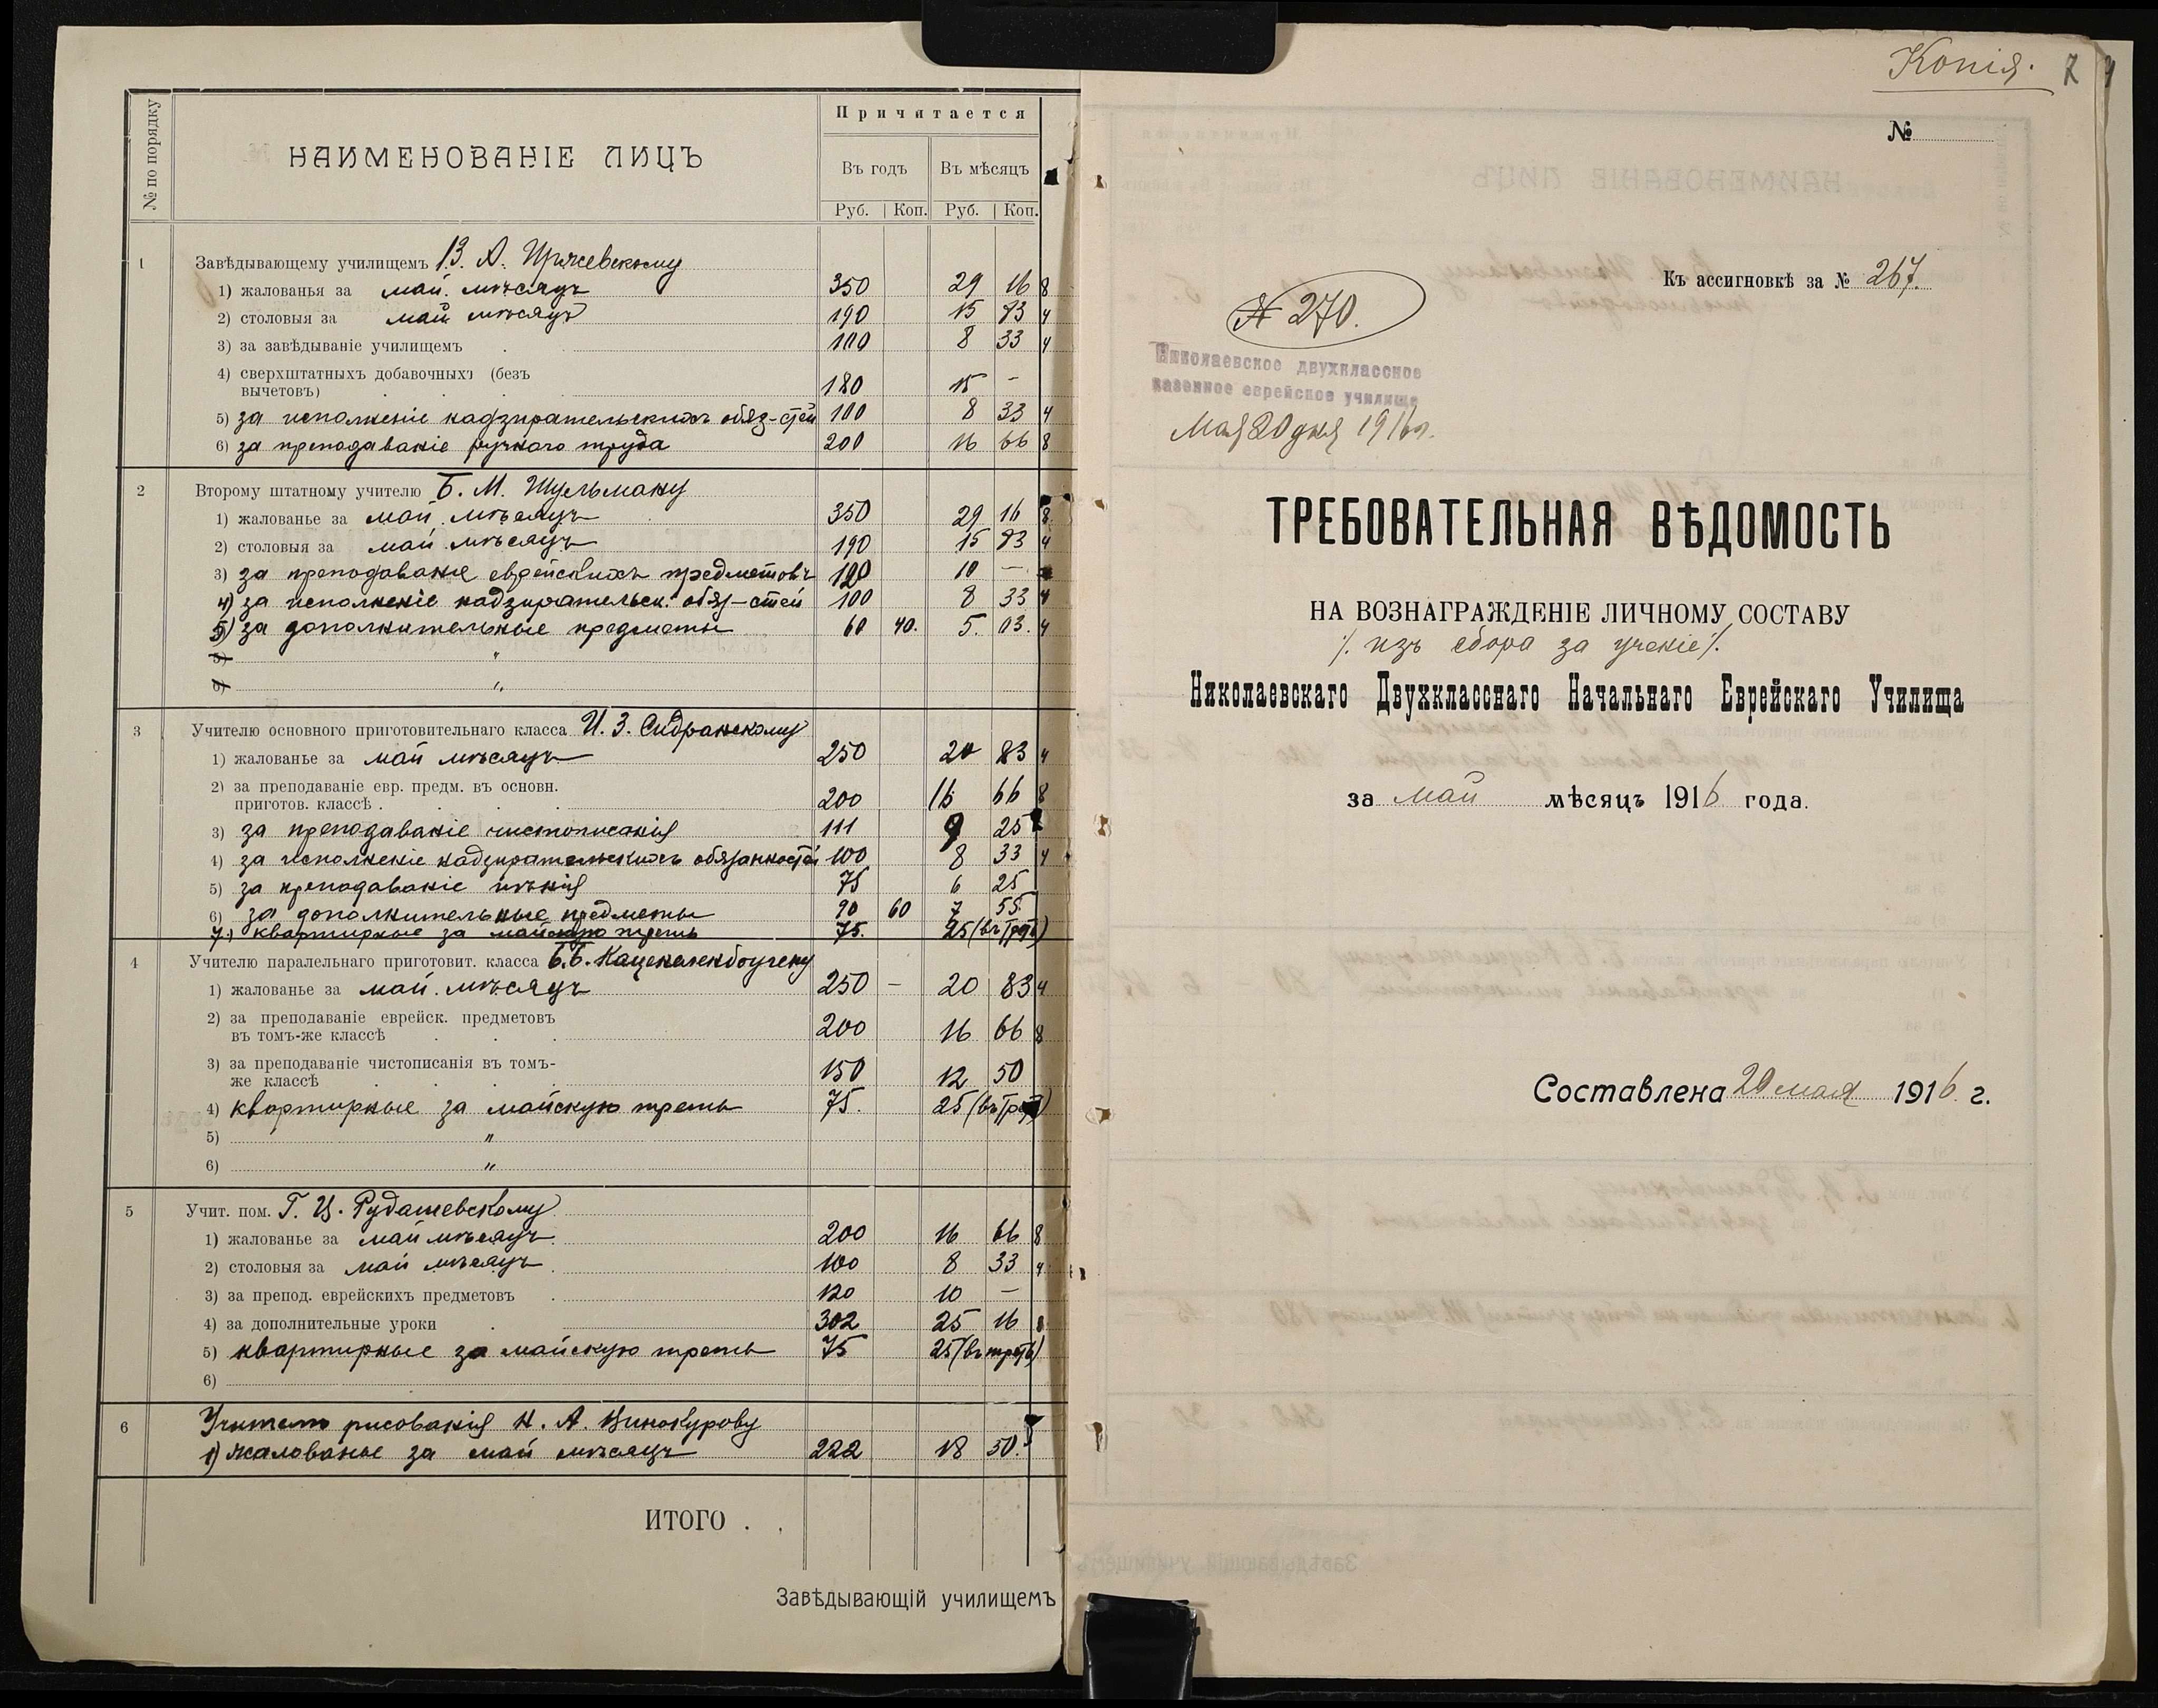 № по порядку
НАИМЕНОВАНІЕ ЛИЦЪ
Причитается
Въ годъ Въ мѣсяцъ
Руб. Коп. Руб. Коп.
1 Завѣдывающему училищемъ В. А.
1) жалованья за май мѣсяцъ 350 29 16 8
2) столовыя за май мѣсяцъ 190 15 83 4
3) за завѣдываніе училищемъ 100 8 33 4
4) сверхштатныхъ добавочныхъ (безъ
вычетовъ) 180 15 –
5) за исполненіе надзирательскихъ обяз-стей 100 8 33 4
6) за преподаваніе ручного труда 200 16 66 8
2 Второму штатному учителю Б. М. Шульману
1) жалованье за май мѣсяцъ 350 29 16 8
2) столовыя за май мѣсяцъ 190 15 83 4
3) за преподаваніе еврейскихъ предметовъ 120 10 –
4) за исполненіе надзирательск. обяз-стей 100 8 33 4
5) за дополнительные предметы 60 40. 5. 03. 4
5) "
6) "
3 Учителю основного приготовительнаго класса И. З. Сидранскому
1) жалованье за май мѣсяцъ 250 20 83 4
2) за преподаваніе евр. предм. въ основн.
приготов. классѣ . 200 16 66 8
3) за преподаваніе чистописанія 111 9 25
4) за исполненіе надзирательскихъ обязанностей 100 8 33 4
5) за преподаваніе пѣнія 75 6 25
6) за дополнительные предметы 90 60 7 55
7) квартирные за майскую треть 75. 25 (въ треть)
4 Учителю паралельнаго приготовит. класса Б. Б. Каценеленбогену
1) жалованье за май мѣсяцъ 250 – 20 83 4
2) за преподаваніе еврейск. предметовъ
въ томъ-же классѣ 200 16 66 8
3) за преподаваніе чистописанія въ томъ-
же классѣ 150 12 50
4) квартирные за майскую треть 75. 25 (въ треть)
5) "
6) "
5 Учит. пом. Г. Ц. Рудашевскому
1) жалованье за май мѣсяцъ 200 16 66 8
2) столовыя за май мѣсяцъ 100 8 33 4
3) за препод. еврейскихъ предметовъ 120 10 –
4) за дополнительные уроки 302 25 16 8
5) квартирные за майскую треть 75 25 (въ треть)
6)
6 Учителю рисованія Н. А. Винокурову
1) жалованье за май мѣсяцъ 222 18 50.
ИТОГО . .
Завѣдывающій училищемъ
Копія. 7
№
Къ ассигновкѣ за № 267.
№ 270.
Николаевское двухклассное
казенное еврейское училище
Мая 20 дня 1916 г.
ТРЕБОВАТЕЛЬНАЯ ВѢДОМОСТЬ
НА ВОЗНАГРАЖДЕНІЕ ЛИЧНОМУ СОСТАВУ
/. изъ сбора за ученіе /.
Николаевскаго Двухкласснаго Начальнаго Еврейскаго Училища
за май мѣсяцъ 1916 года.
Составлена 20 мая 1916 г.